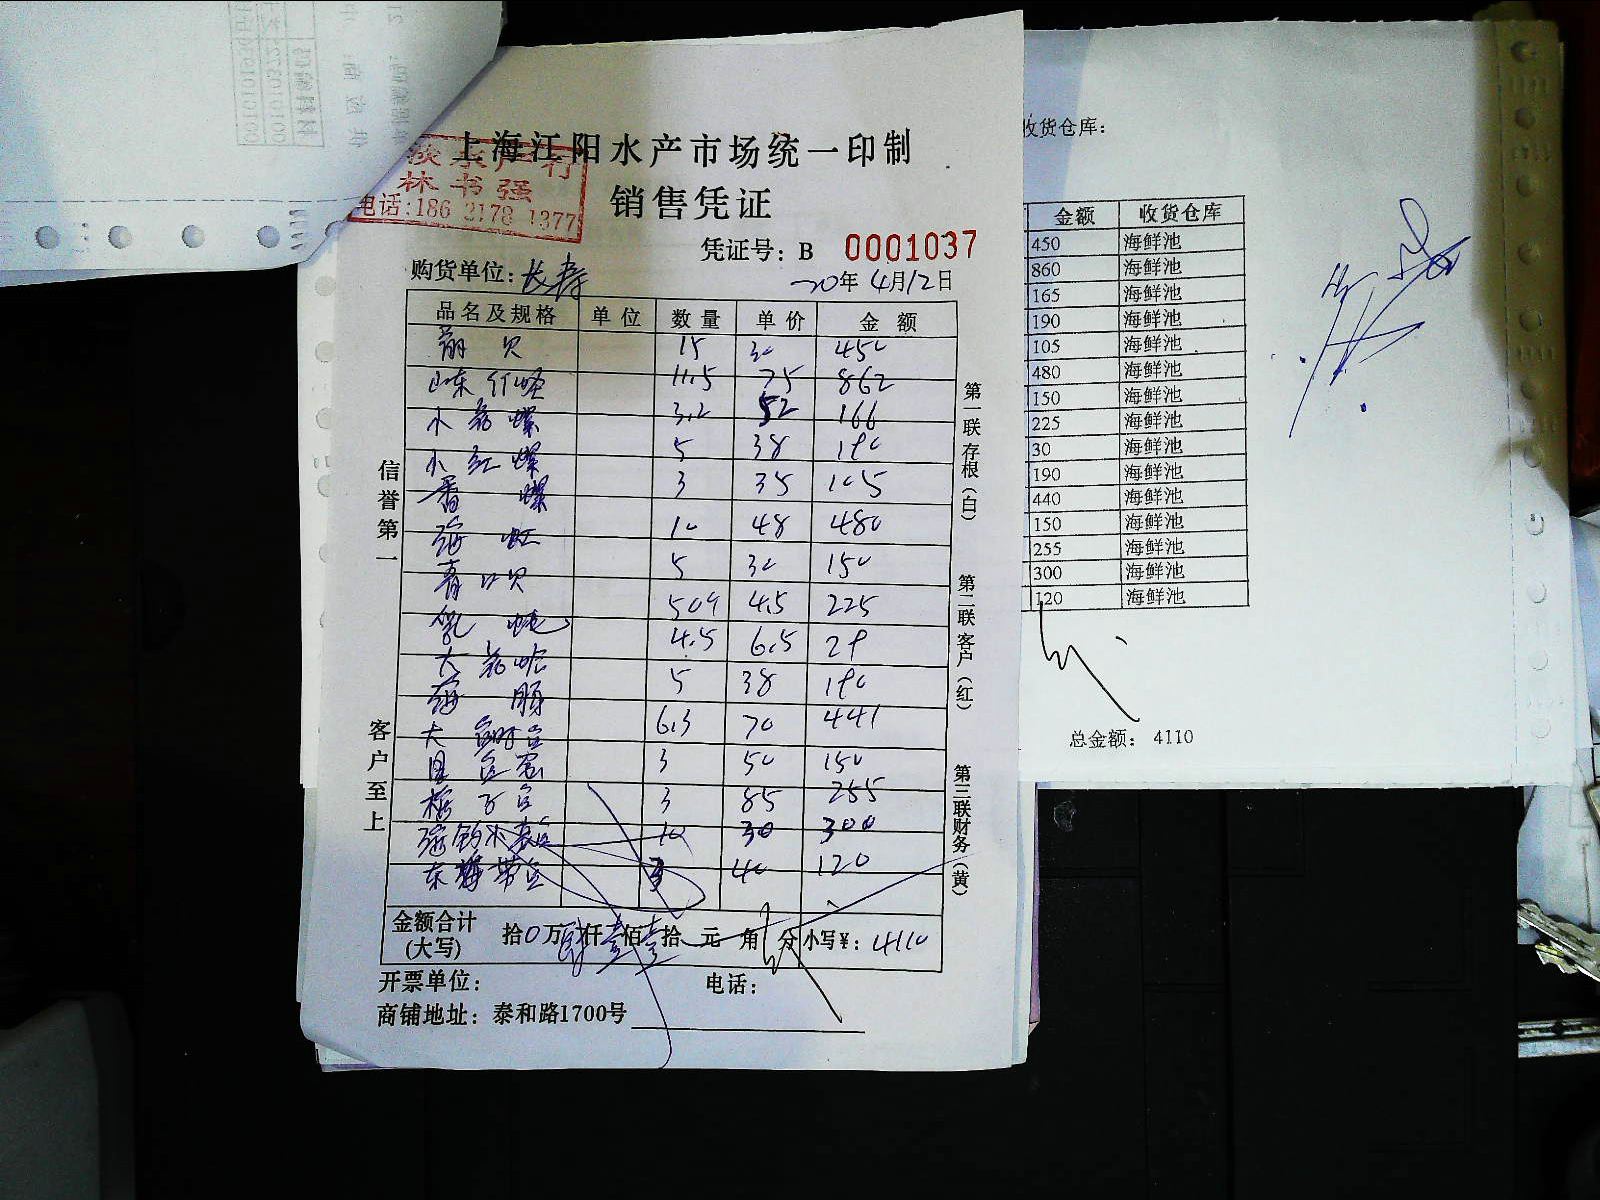 上海江阳水产市场统一印制
淡水产行
林书强
电话:186 2178 1377
销售凭证
凭证号: B 0001037
购货单位: 长寿
20年 4月12日
品名及规格 单位 数量 单价 金额
扇贝 15 30 450
山东竹蛏 11.5 75 862
小花螺 3.2 52 166
小红螺 5 38 190
香螺 3 35 105
海虹 10 48 480
青口贝 5 30 150
50只 4.5 225
大花蛤 4.5 6.5 29
海肠 5 38 190
6.3 70 441
3 50 150
3 85 255
10 30 300
东海带鱼 3 40 120
金额合计(大写) 拾0万肆仟壹佰壹拾元 角 分 小写¥: 4110
开票单位:
电话:
商铺地址: 泰和路1700号
信誉第一
客户至上
第一联存根(白)
第二联客户(红)
第三联财务(黄)
收货仓库:
金额 收货仓库
450 海鲜池
860 海鲜池
165 海鲜池
190 海鲜池
105 海鲜池
480 海鲜池
150 海鲜池
225 海鲜池
30 海鲜池
190 海鲜池
440 海鲜池
150 海鲜池
255 海鲜池
300 海鲜池
120 海鲜池
总金额: 4110